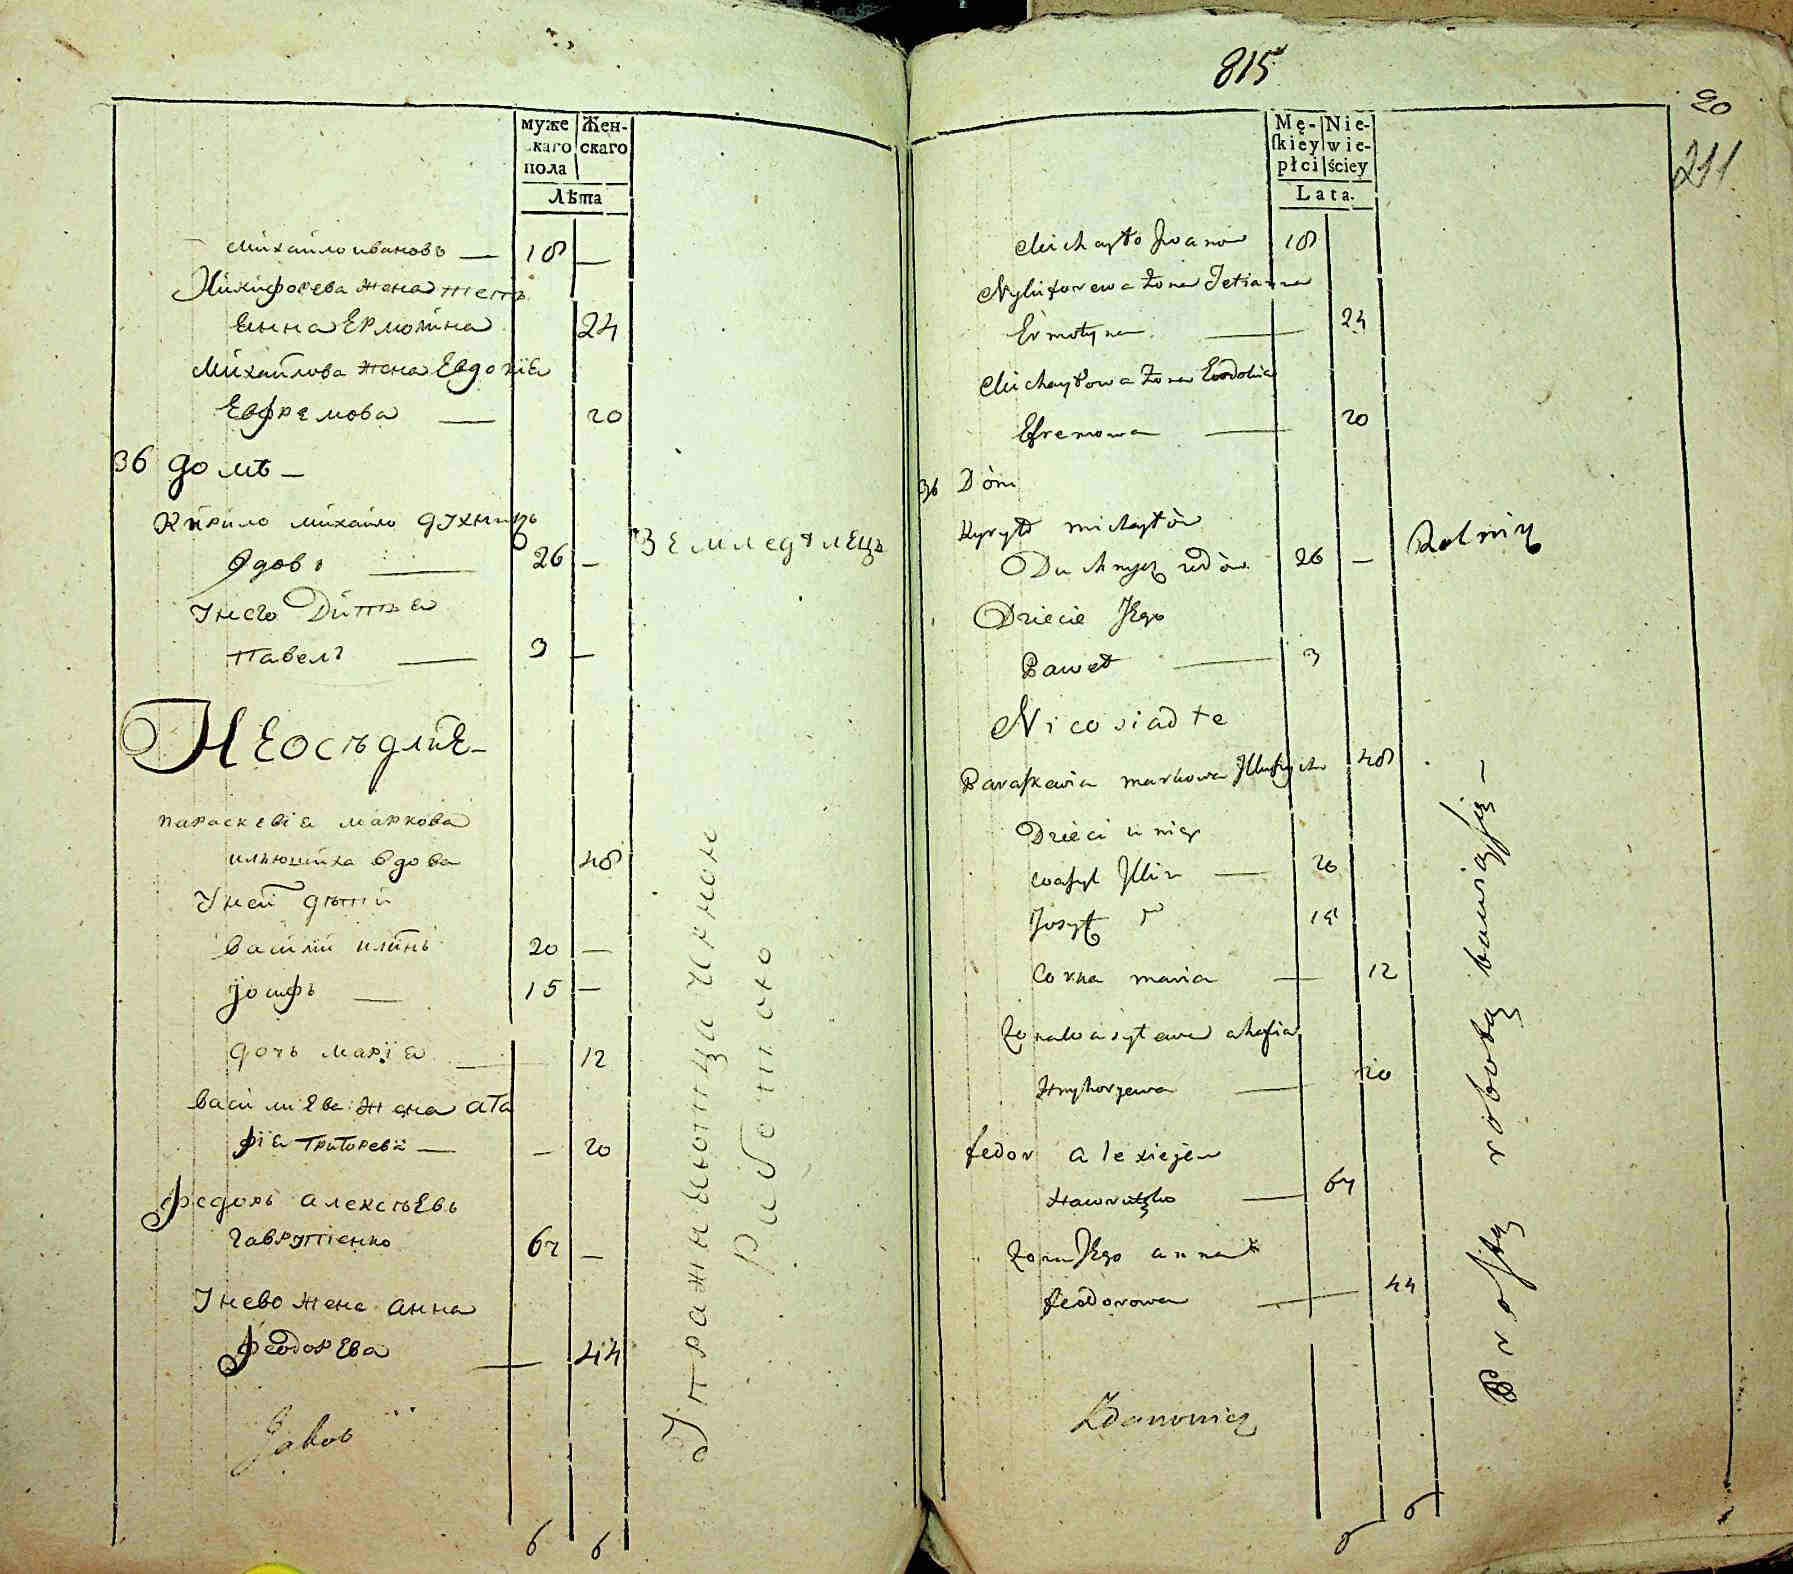 муже
скаго
пола
Жен-
скаго
Лѣта
Михайло ивановъ — 18 —
Никифорева жена тетъ
янна Ермолина 24
Михайлова жена Евдокїя
Ефремова — 20
36 домъ —
Кирило михайло духничъ
вдовъ — 26 — Земледѣлецъ
Унего Дитя
Павелъ — 3 —
Неосѣдлие —
параскевїя маркова
ильюшиха вдова 48
Уней дѣти
василий илинъ 20 —
Иосифъ — 15 —
дочь марїя — 12
василиева жена ага
фїя григорева — — 20
федоръ алексѣевъ
гавриленко 64 —
Унево жена анна
феодорева — 44
Jakob
6 6
работою
815
20
211
Mę-
skiey
płci
Nie-
wie-
ściey
Lata.
Michayło Jwanow 18
Nykiforewa żona Tetianna
Ermolyna — 24
Michayłowa żona Ewdokia
Efremowa — 20
36 Dóm
Kyryło michayłów
Duchnycz wdów 26 — Rolnik
Dziecie Jego
Paweł — 3
Nieosiadłe
Paraskewia markowa Jlluszycha 48
Dzieci u niey
wasyl Jllin — 20
Josyf 15
Corka maria — 12
Żona wasylewa ahafia
Hryhorjewa — 20
fedor alexiejew
— 64
Żona Jego anna
feodorowa — 44
Zdanowicz
6 6
Prostą robotą bawiąsię —